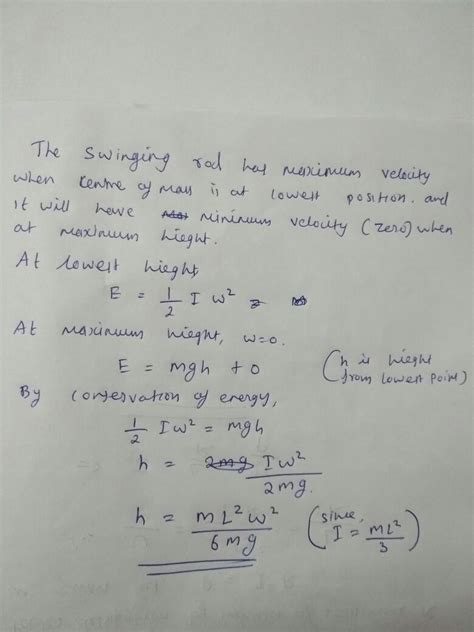 The Swinging rod has maximum velocity
when centre of mass is at lowest position. and
it will have minimum velocity (zero) when
at maximum hieght.
At lowest hieght,
E = 1/2 I ω²
At maximum hieght, ω=0.
E = mgh + 0 (h is hieght from lowest point)
By conservation of energy,
1/2 Iω² = mgh
h = Iω²/2mg.
h = mL²ω²/6mg (since, I = mL²/3)